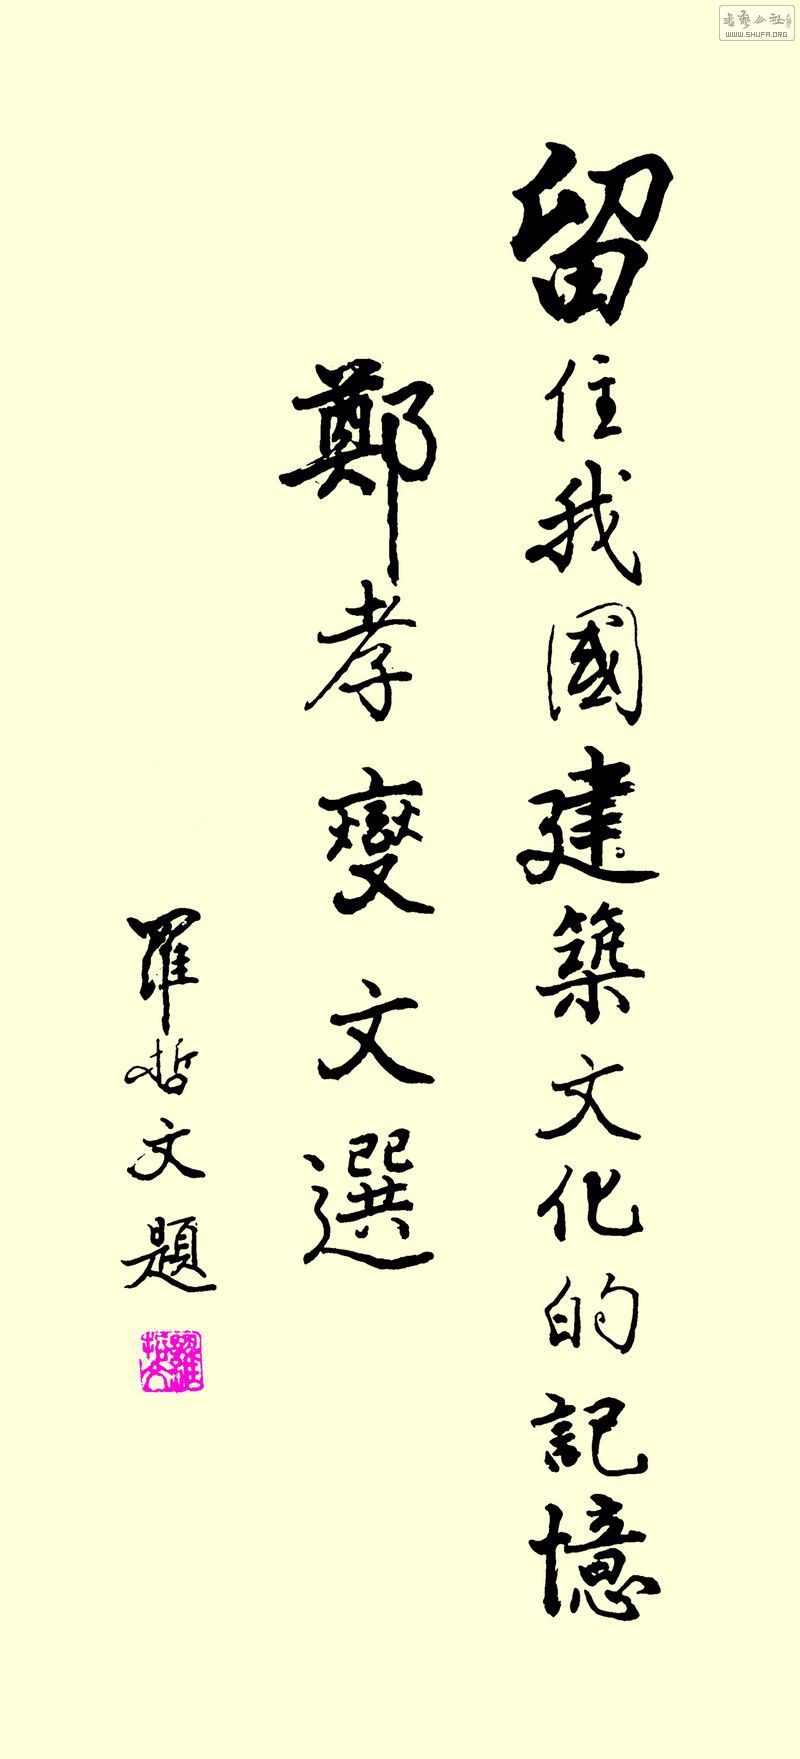 留住我國建築文化的記憶
鄭孝燮文選
羅哲文題
羅哲文
書藝公社
WWW.SHUFA.ORG